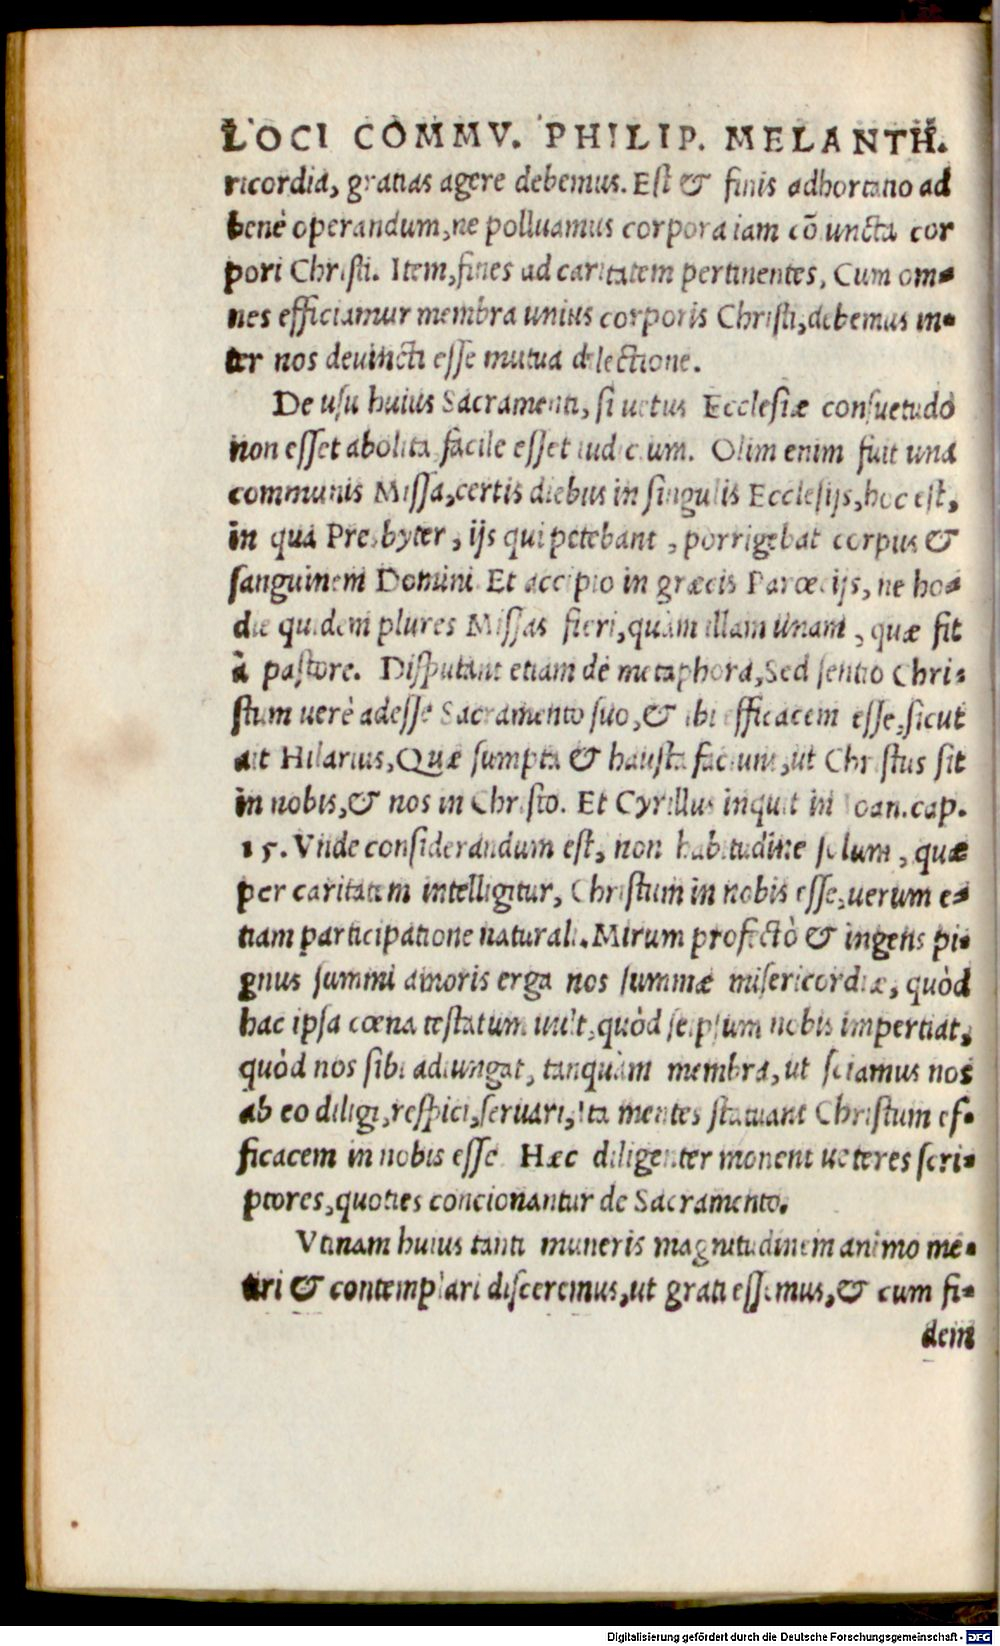 LOCI COMMV. PHILIP. MELANTH.
ricordia, gratias agere debemus. Est & finis adhortatio ad
benè operandum, ne polluamus corpora iam cōiuncta cor
pori Christi. Item, fines ad caritatem pertinentes, Cum om-
nes efficiamur membra unius corporis Christi, debemus in-
ter nos deuincti esse mutua dilectione.
De usu huius Sacramenti, si uetus Ecclesiæ consuetudo
non esset abolita facile esset iudicium. Olim enim fuit una
communis Missa, certis diebus in singulis Ecclesijs, hoc est,
in qua Presbyter, ijs qui petebant, porrigebat corpus &
sanguinem Domini Et accipio in græcis Parœcijs, ne ho-
die quidem plures Missas fieri, quàm illam unam, quæ fit
à pastore. Disputant etiam de metaphora, Sed sentio Chri-
stum uerè adesse Sacramento suo, & ibi efficacem esse, sicut
ait Hilarius, Quæ sumpta & hausta faciunt, ut Christus sit
in nobis, & nos in Christo. Et Cyrillus inquit in Ioan. cap.
15. Vnde considerandum est, non habitudine solum, quæ
per caritatem intelligitur, Christum in nobis esse, uerum e-
tiam participatione naturali. Mirum profectò & ingens pi-
gnus summi amoris erga nos summæ misericordiæ, quòd
hac ipsa cœna testatum uult, quòd seipsum nobis impertiat,
quòd nos sibi adiungat, tanquàm membra, ut sciamus nos
ab eo diligi, respici, seruari, Ita mentes statuant Christum ef-
ficacem in nobis esse Hæc diligenter monent ueteres scri-
ptores, quoties concionantur de Sacramento.
Vtinam huius tanti muneris magnitudinem animo me-
tiri & contemplari disceremus, ut grati essemus, & cum fi-
dem
Digitalisierung gefördert durch die Deutsche Forschungsgemeinschaft - DFG